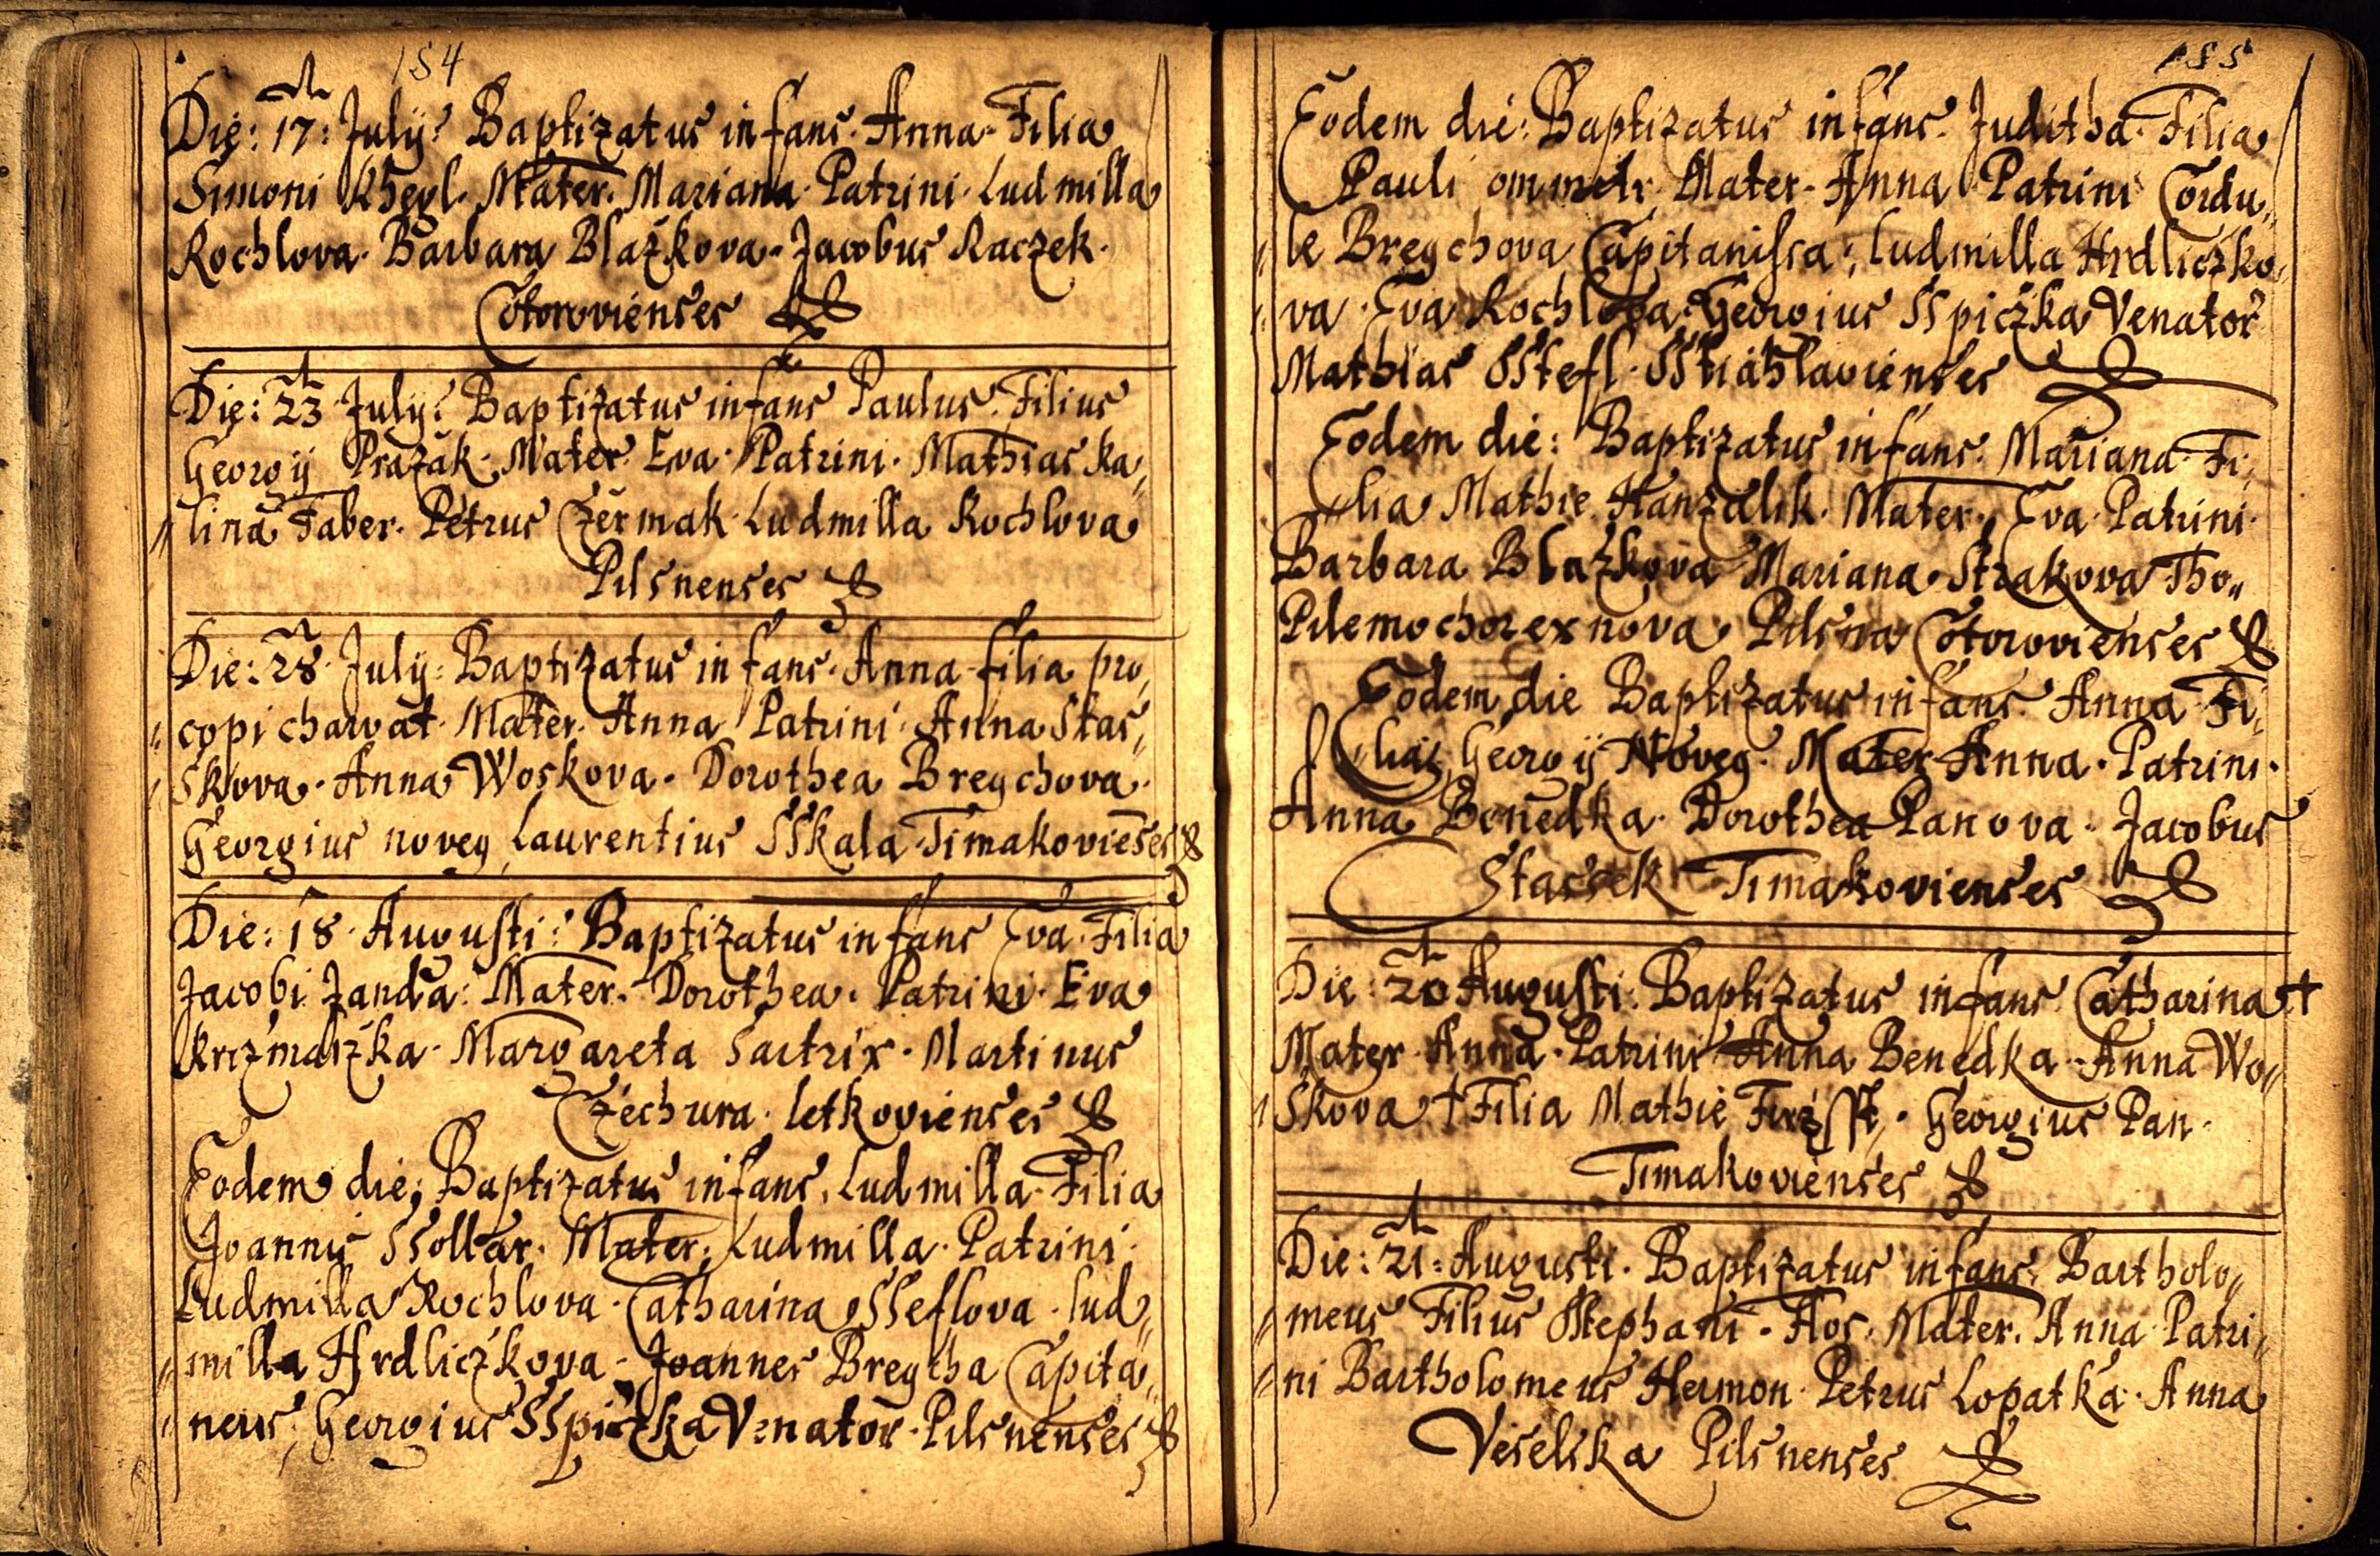 154
Die: 17: July: Baptizatus infans. Anna. Filia
Simoni Khegl. Mater. Mariana. Patrini. Ludmilla
Kochlova. Barbara Blažkova. Jacobus Raczek.
Cotorovienses
Die: 23 July: Baptizatus infans Paulus. Filius
Georgij Pražak. Mater. Eva. Patrini. Mathias Ka„
„lina Faber. Petrus Czermak. Ludmilla Kochlova
Pilsnenses
Die: 28. July: Baptizatus infans. Anna filia pro„
„copi charvat. Mater. Anna Patrini. Anna Stas„
„skova. Anna Woskova. Dorothea Bregchova.
Georgius noveg Laurentius SSkala Timakoviẽses
Die: 18. Augusti: Baptizatus infans Eva. Filia
Jacobi Janda: Mater. Dorothea. Patrini. Eva
Krczmarzka. Margareta Sartrix. Martinus
Czechura. Letkovienses
Eodem die; Baptizatus infans. Ludmilla. Filia
Joannis SSollar. Mater. Ludmilla. Patrini.
Ludmilla Kochlova. Catharina SSeflova. Lud„
„milla Hrdliczkova. Joannes Bregcha Capita„
„neus, Georgius SSpiczka Venator. Pilsnenses
155
Eodem die: Baptizatus infans. Juditha. Filia
Pauli Mater. Anna Patrini Cordu„
„le Bregchova Capitanissa; Ludmilla Hrdliczko„
„va. Eva Kochlova. Georgius SSpiczka Venator
Mathias SStefl. SStiahlavienses
Eodem die: Baptizatus infans. Mariana. Fi„
„lia Mathie Hanzalik. Mater. Eva. Patrini.
Barbara Blažkova Mariana Strakova Tho„
Pilsna Cotorovienses
Eodem die Baptizatus infans. Anna Fi„
„lia Georgij Noveg. Mater Anna. Patrini.
Anna Benedka. Dorothea Panova. Jacobus
Stassek Timakovienses
Die: 20 Augusti: Baptizatus infans Catharina †
Mater. Anna. Patrini Anna Benedka. Anna Wo„
„skova † Filia Mathie Georgius Pan.
Timakovienses
Die: 21: Augusti. Baptizatus infans. Bartholo„
„meus Filius SStephani. Hos. Mater. Anna Patri„
„ni Bartholomeus Hermon. Petrus Lopatka. Anna
Veselska Pilsnenses